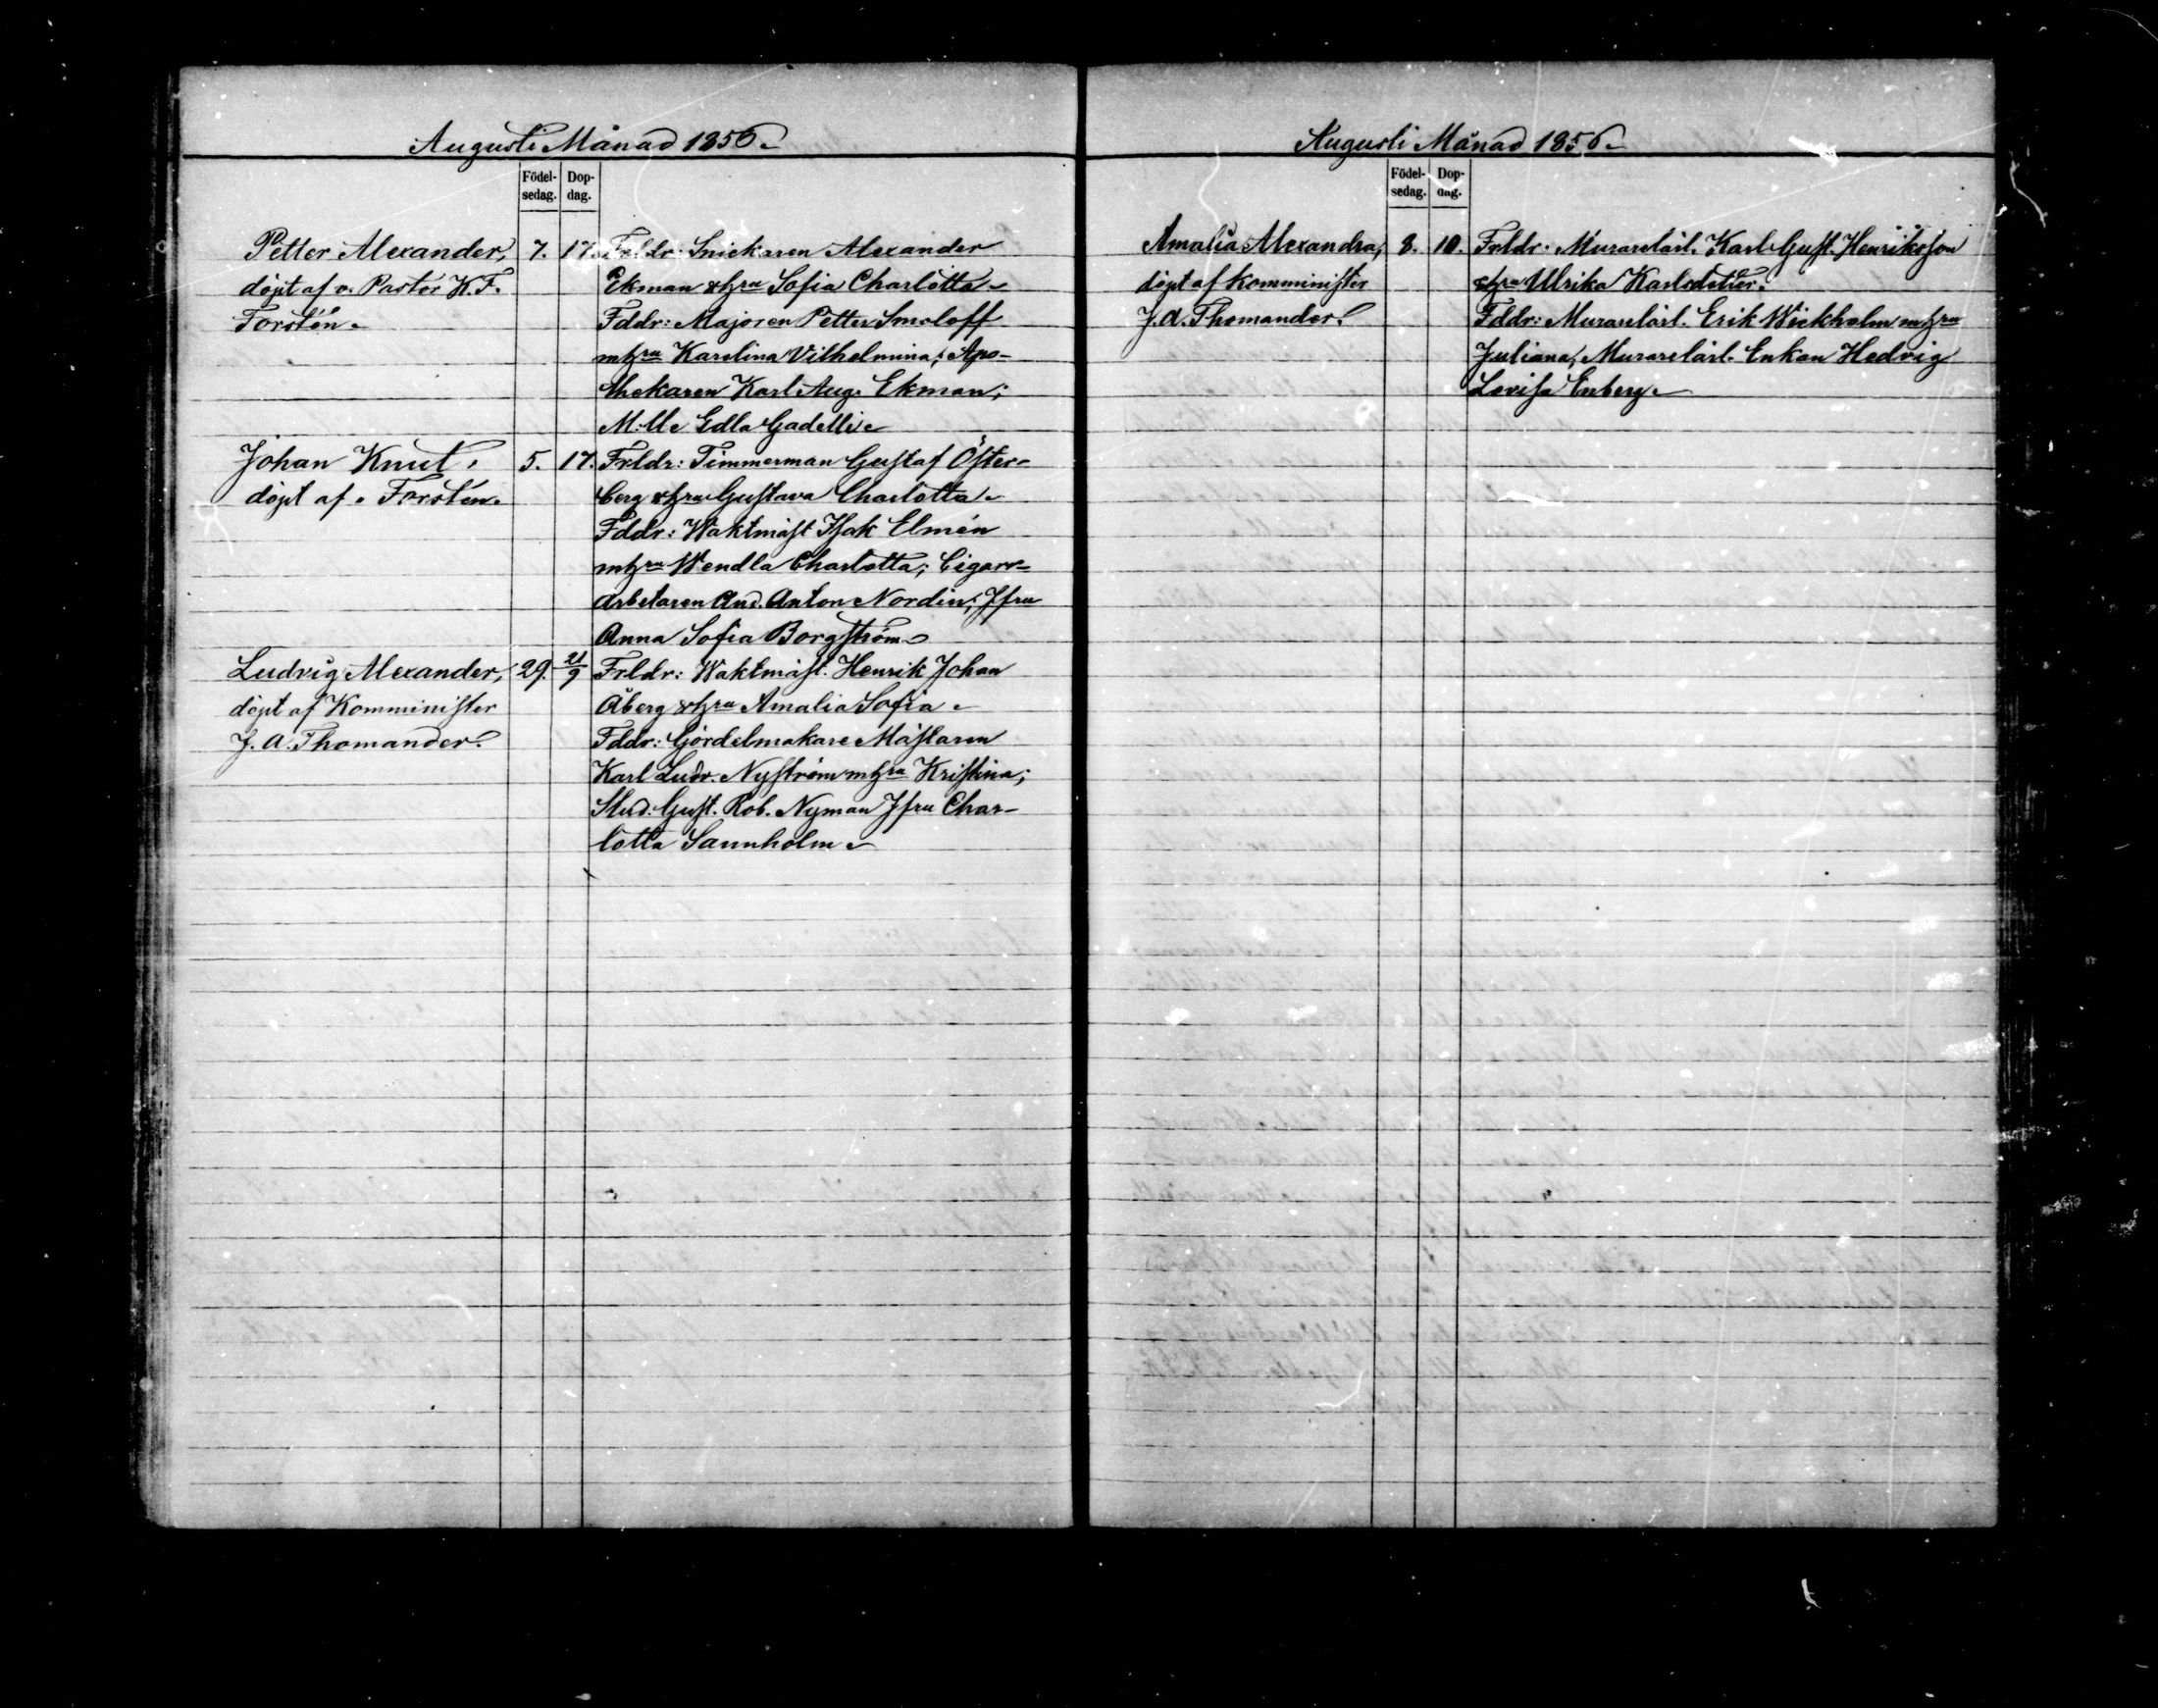 Augusti Månad 1856.
Födel-
sedag.
Dop-
dag.
Petter Alexander,
döpt af v. Pastor K. F.
Forstén.
7. 17. Frldr: Snickaren Alexander
Ekman & hru Sofia Charlotta.
Fddr: Majoren Petter Smoloff
m hru Karolina Vilhelmina; Apo-
thekaren Karl Aug. Ekman;
M:lle Edla Gadelli.
Johan Knut.
döpt af. Forstén.
5. 17. Frldr: Timmerman Gustaf Öster-
berg & hru Gustava Charlotta.
Fddr: Waktmäst Isak Elmén
m hru Wendla Charlotta; Cigarr-
arbetaren And. Anton Nordin; Jfru
Anna Sofia Borgström.
Ludvig Alexander,
döpt af Komminister
J. A. Thomander.
29. 21/9 Frldr: Waktmäst. Henrik Johan
Åberg & hru Amalia Sofia.
Fddr: Gördelmakare Mästaren
Karl Ludv. Nyström m hru Kristina;
Stud. Gust. Rob. Nyman Jfru Char-
lotta Sannholm.
Augusti Månad 1856.
Födel-
sedag.
Dop-
dag.
Amalia Alexandra,
döpt af Komminister
J. A. Thomander.
8. 10. Frldr: Murarelärl. Karl Gust. Henriksson
& hru Ulrika Karlsdotter.
Fddr: Murarelärl. Erik Wickholm m hru
Juliana, Murarelärl. Enkan Hedvig
Lovisa Enberg.